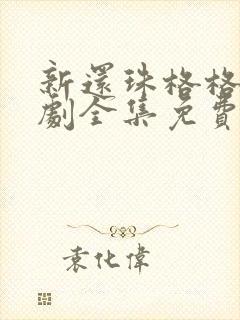 新還珠格格
劇全集免費
袁化偉